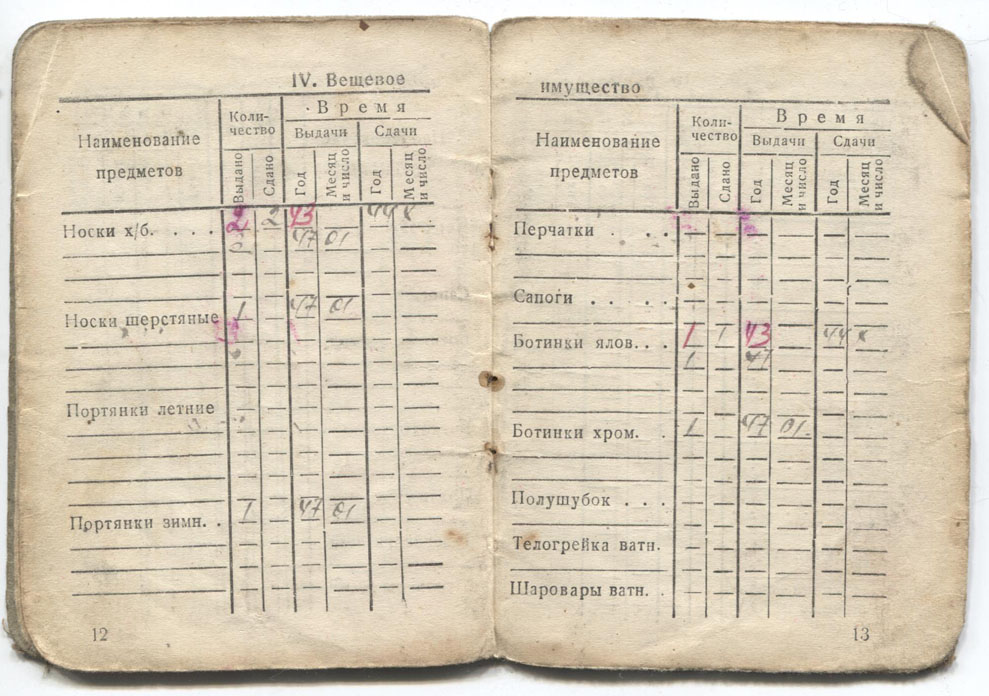 IV. Вещевое
Наименование предметов
Коли-
чество
Время
Выдачи
Сдачи
Выдано
Сдано
Год
Месяц
и число
Год
Месяц
и число
Носки х/б. . . . 2 2 43 44 X
47 01
Носки шерстяные 1 47 01
Портянки летние
Портянки зимн. . 1 47 01
12
имущество
Наименование
предметов
Коли-
чество
Время
Выдачи
Сдачи
Выдано
Сдано
Год
Месяц
и число
Год
Месяц
и число
Перчатки . . .
Сапоги . . . .
Ботинки ялов. . . 1 1 43 44 X
1 47
Ботинки хром. . 1 47 01.
Полушубок . . .
Телогрейка ватн.
Шаровары ватн. .
13